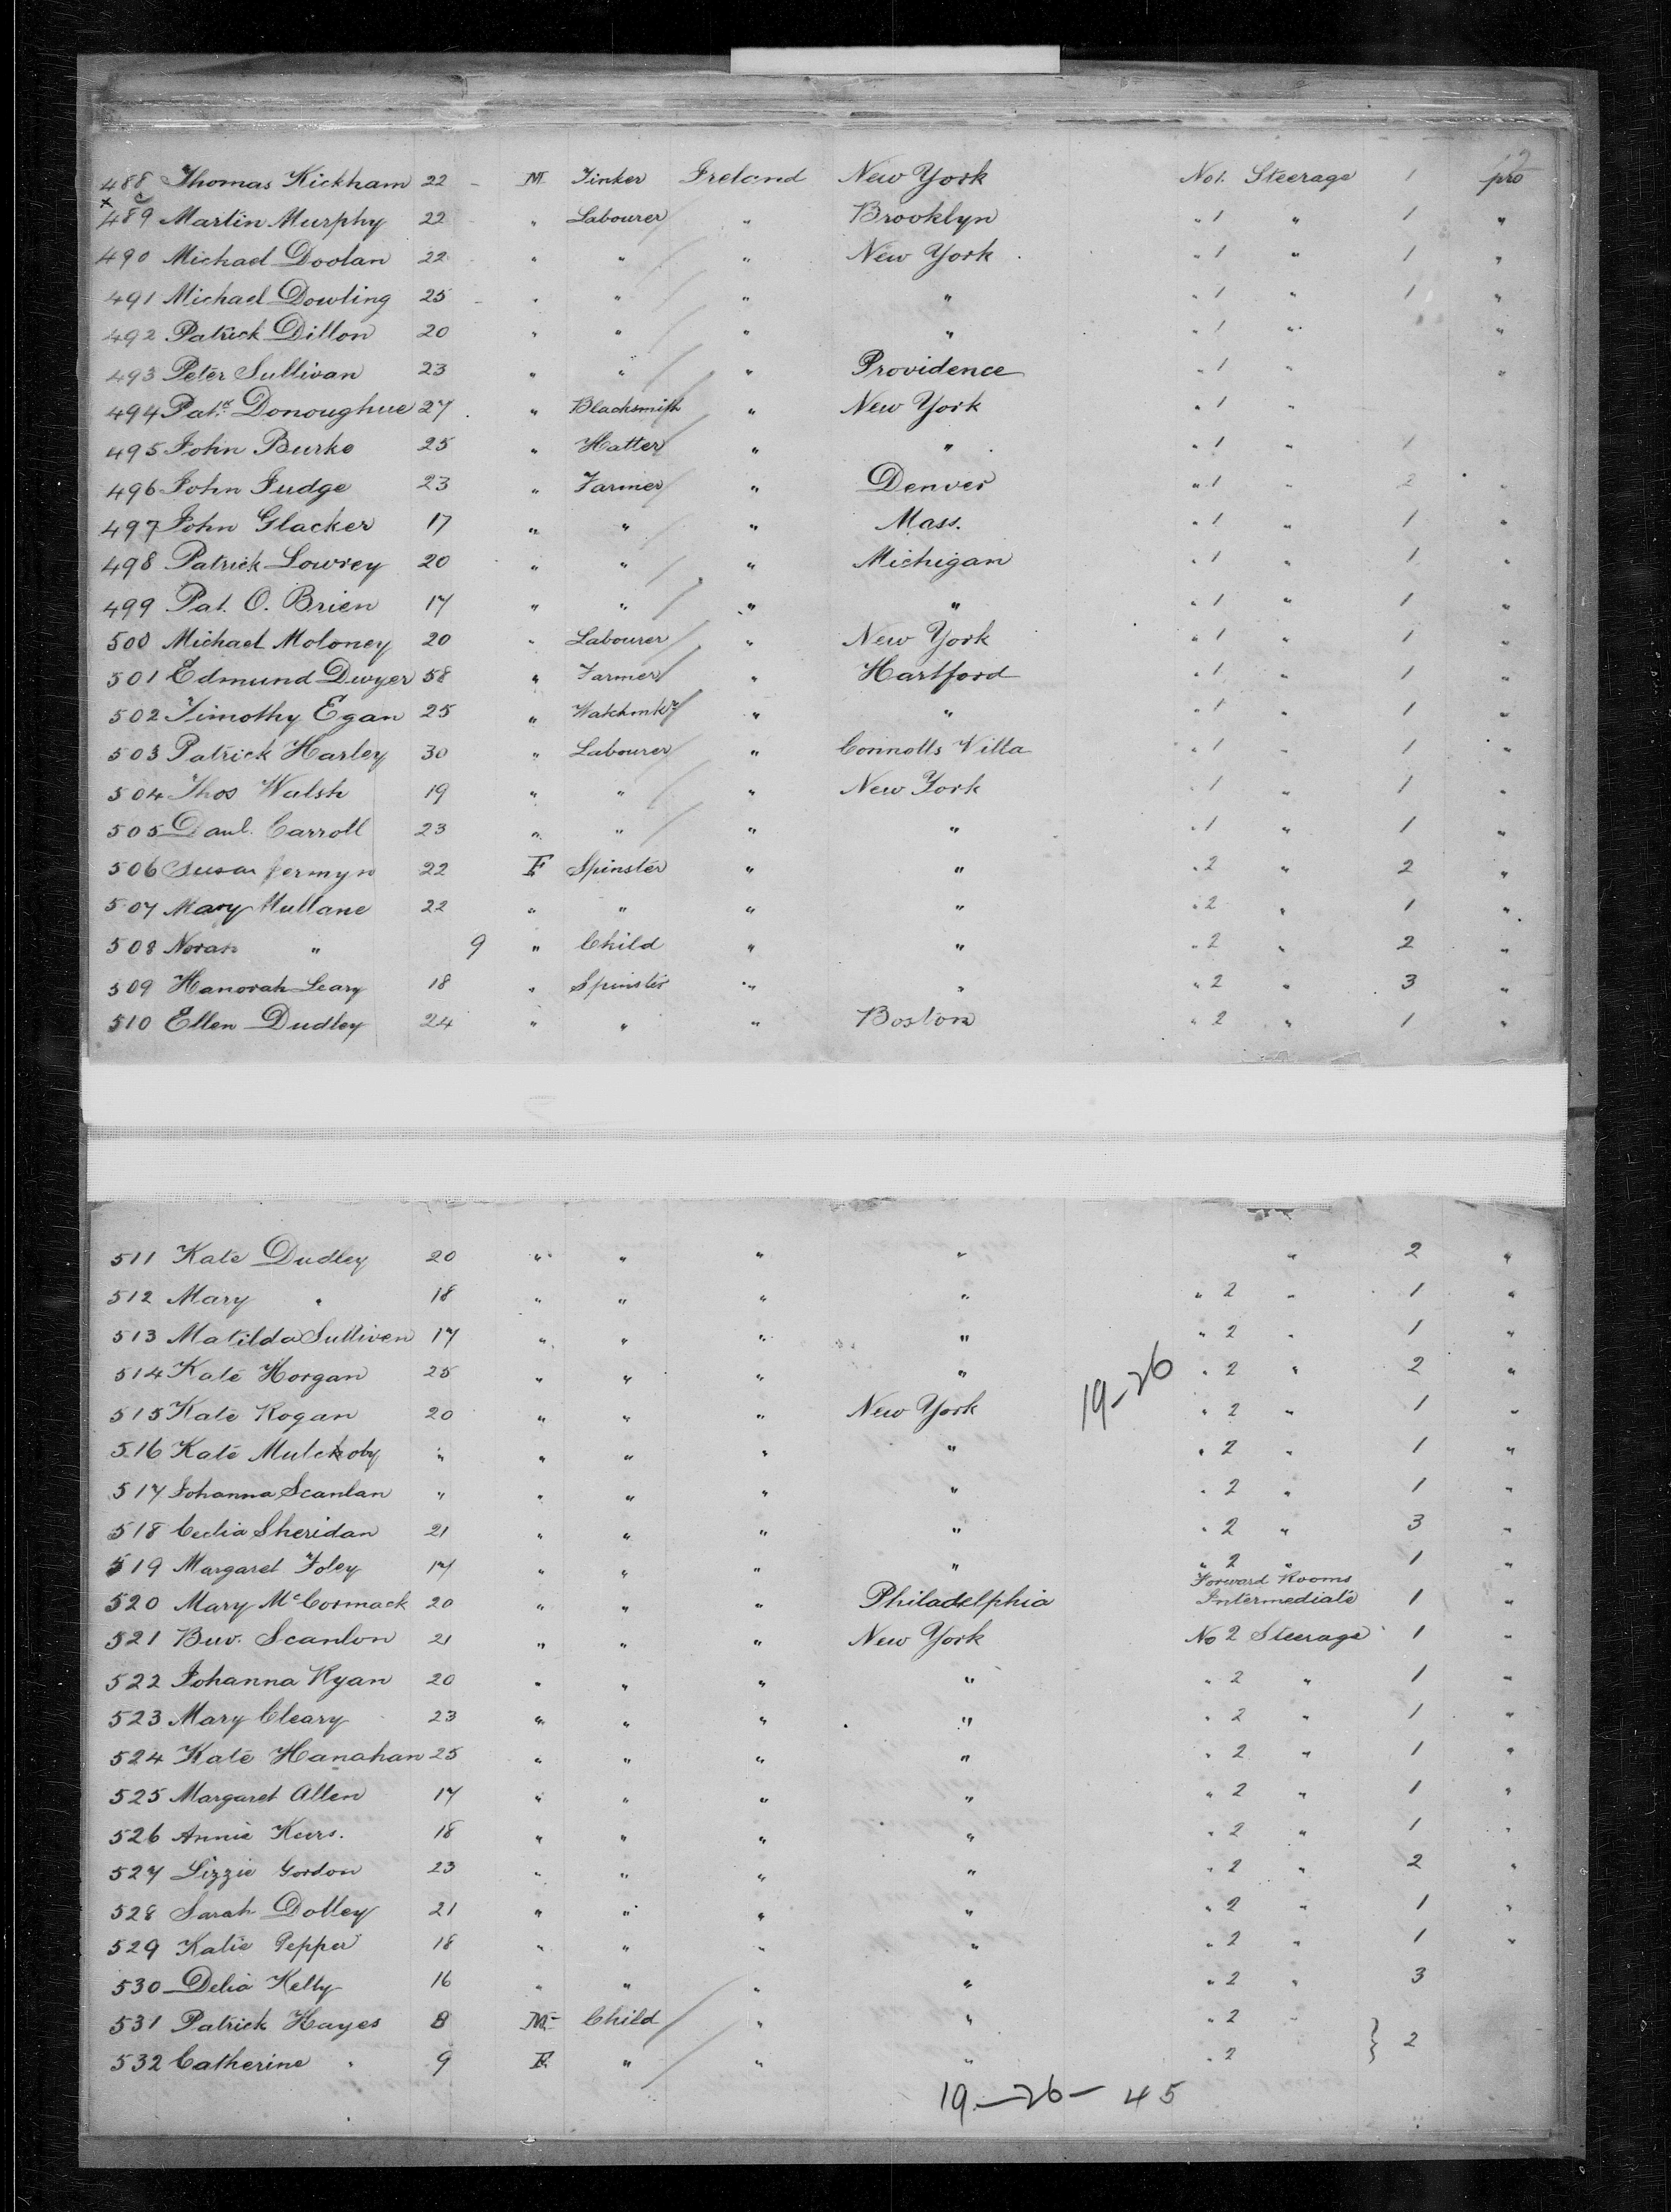 488 Thomas Kickham 22 - M Tinker Ireland New York No 1. Steerage 1 pro
x
489 Martin Murphy 22 " Labourer " Brooklyn " 1 " 1 "
490 Michael Doolan 22 " " " New York " 1 " 1 "
491 Michael Dowling 25 " " " " " 1 " 1 "
492 Patrick Dillon 20 " " " " " 1 " "
493 Peter Sullivan 23 " " " Providence " 1 " "
494 Patk Donoughue 27 " Blacksmith " New York " 1 "
495 John Burke 25 " Hatter " " " 1 " 1
496 John Judge 23 " Farmer " Denver " 1 " 2 "
497 John Glacker 17 " " " Mass. " 1 " 1 "
498 Patrick Lowrey 20 " " " Michigan " 1 " 1 "
499 Pat. O. Brien 17 " " " " " 1 " 1 "
500 Michael Moloney 20 " Labourer " New York " 1 " 1 "
501 Edmund Dwyer 58 " Farmer " Hartford " 1 " 1 "
502 Timothy Egan 25 " Watchmkr " " " 1 " 1 "
503 Patrick Harley 30 " Labourer " Connolls Villa " 1 " 1 "
504 Thos Walsh 19 " " " New York " 1 " 1 "
505 Danl. Carroll 23 " " " " " 1 " 1 "
506 Susan Jermyn 22 F Spinster " " " 2 " 2 "
507 Mary Mullane 22 " " " " " 2 " 1 "
508 Norah " 9 " Child " " " 2 " 2 "
509 Hanorah Leary 18 " Spinster " " " 2 " 3 "
510 Ellen Dudley 24 " " " Boston " 2 " 1 "
511 Kate Dudley 20 " " " " " 2 "
512 Mary " 18 " " " " " 2 " 1 "
513 Matilda Sulliven 17 " " " " " 2 " 1 "
514 Kate Horgan 25 " " " " 19-26 " 2 " 2 "
515 Kate Rogan 20 " " " New York " 2 " 1 "
516 Kate " " " " " " 2 " 1 "
517 Johanna Scanlan " " " " " " 2 " 1 "
518 Cecilia Sheridan 21 " " " " " 2 " 3 "
519 Margaret Foley 17 " " " " " 2 " 1 "
Forward Rooms
520 Mary McCormack 20 " " " Philadelphia Intermediate 1 "
521 Scanlon 21 " " " New York No 2 Steerage 1 "
522 Johanna Ryan 20 " " " " " 2 " 1 "
523 Mary Cleary 23 " " " " " 2 " 1 "
524 Kate Hanahan 25 " " " " " 2 " 1 "
525 Margaret Allen 17 " " " " " 2 " 1 "
526 Annie 18 " " " " " 2 " 1 "
527 Lizzie Gordon 23 " " " " " 2 " 2 "
528 Sarah Dolley 21 " " " " " 2 " 1 "
529 Katie Pepper 18 " " " " " 2 " 1 "
530 Delia Kelly 16 " " " " " 2 " 3
531 Patrick Hayes 8 M Child " " " 2 "
532 Catherine " 9 F " " " " 2 } 2
19-26-45